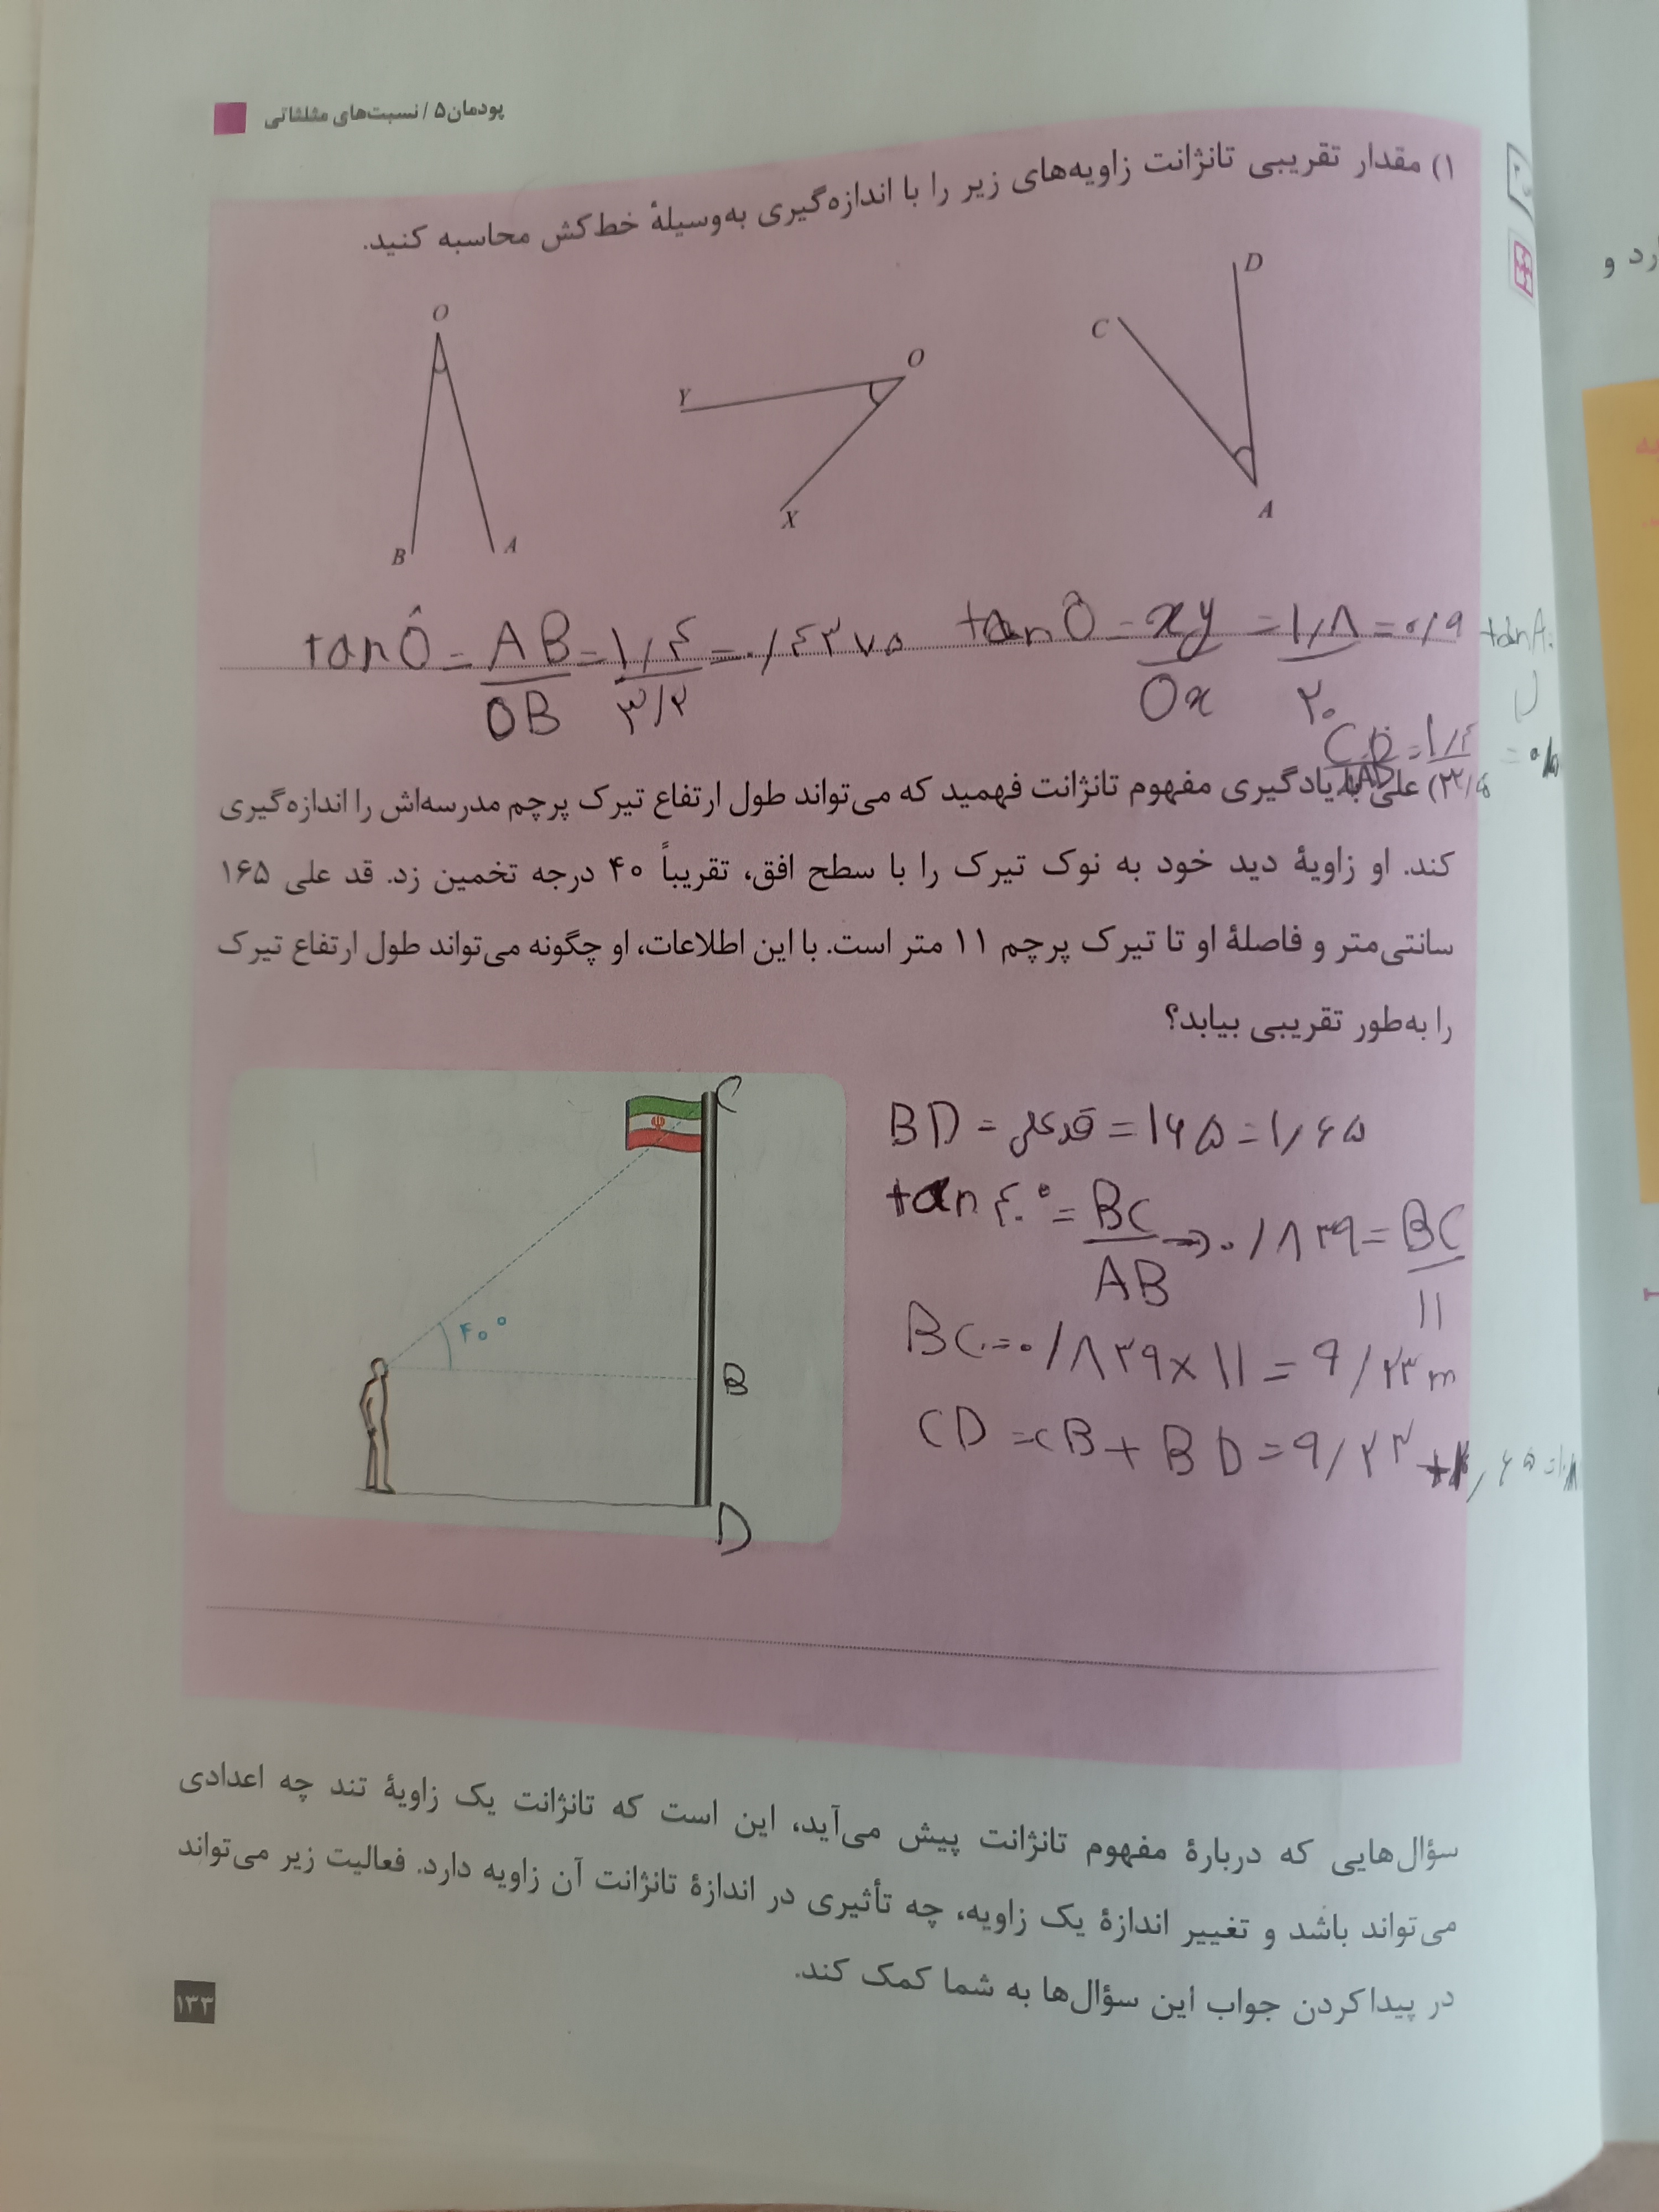 پودمان ۵ / نسبت‌های مثلثاتی
۱) مقدار تقریبی تانژانت زاویه‌های زیر را با اندازه‌گیری به‌وسیلهٔ خط‌کش محاسبه کنید.
D
C
A
O
Y
X
O
B
A
tan Ô = AB/OB = ۱/۴ / ۳/۲ = ۰/۴۳۷۵
tan Ô = xy/Ox = ۱/۸ / ۲۰ = ۰/۹
tan A
۲) علی با یادگیری مفهوم تانژانت فهمید که می‌تواند طول ارتفاع تیرک پرچم مدرسه‌اش را اندازه‌گیری
کند. او زاویهٔ دید خود به نوک تیرک را با سطح افق، تقریباً ۴۰ درجه تخمین زد. قد علی ۱۶۵
سانتی‌متر و فاصلهٔ او تا تیرک پرچم ۱۱ متر است. با این اطلاعات، او چگونه می‌تواند طول ارتفاع تیرک
را به‌طور تقریبی بیابد؟
C
۴۰°
B
D
BD = قد علی = ۱۶۵ = ۱/۶۵
tan ۴۰° = BC/AB → ۰/۸۳۹ = BC/۱۱
BC = ۰/۸۳۹ × ۱۱ = ۹/۲۳ m
CD = CB + BD = ۹/۲۳ +
سؤال‌هایی که دربارهٔ مفهوم تانژانت پیش می‌آید، این است که تانژانت یک زاویهٔ تند چه اعدادی
می‌تواند باشد و تغییر اندازهٔ یک زاویه، چه تأثیری در اندازهٔ تانژانت آن زاویه دارد. فعالیت زیر می‌تواند
در پیدا کردن جواب این سؤال‌ها به شما کمک کند.
۱۳۳
رد و